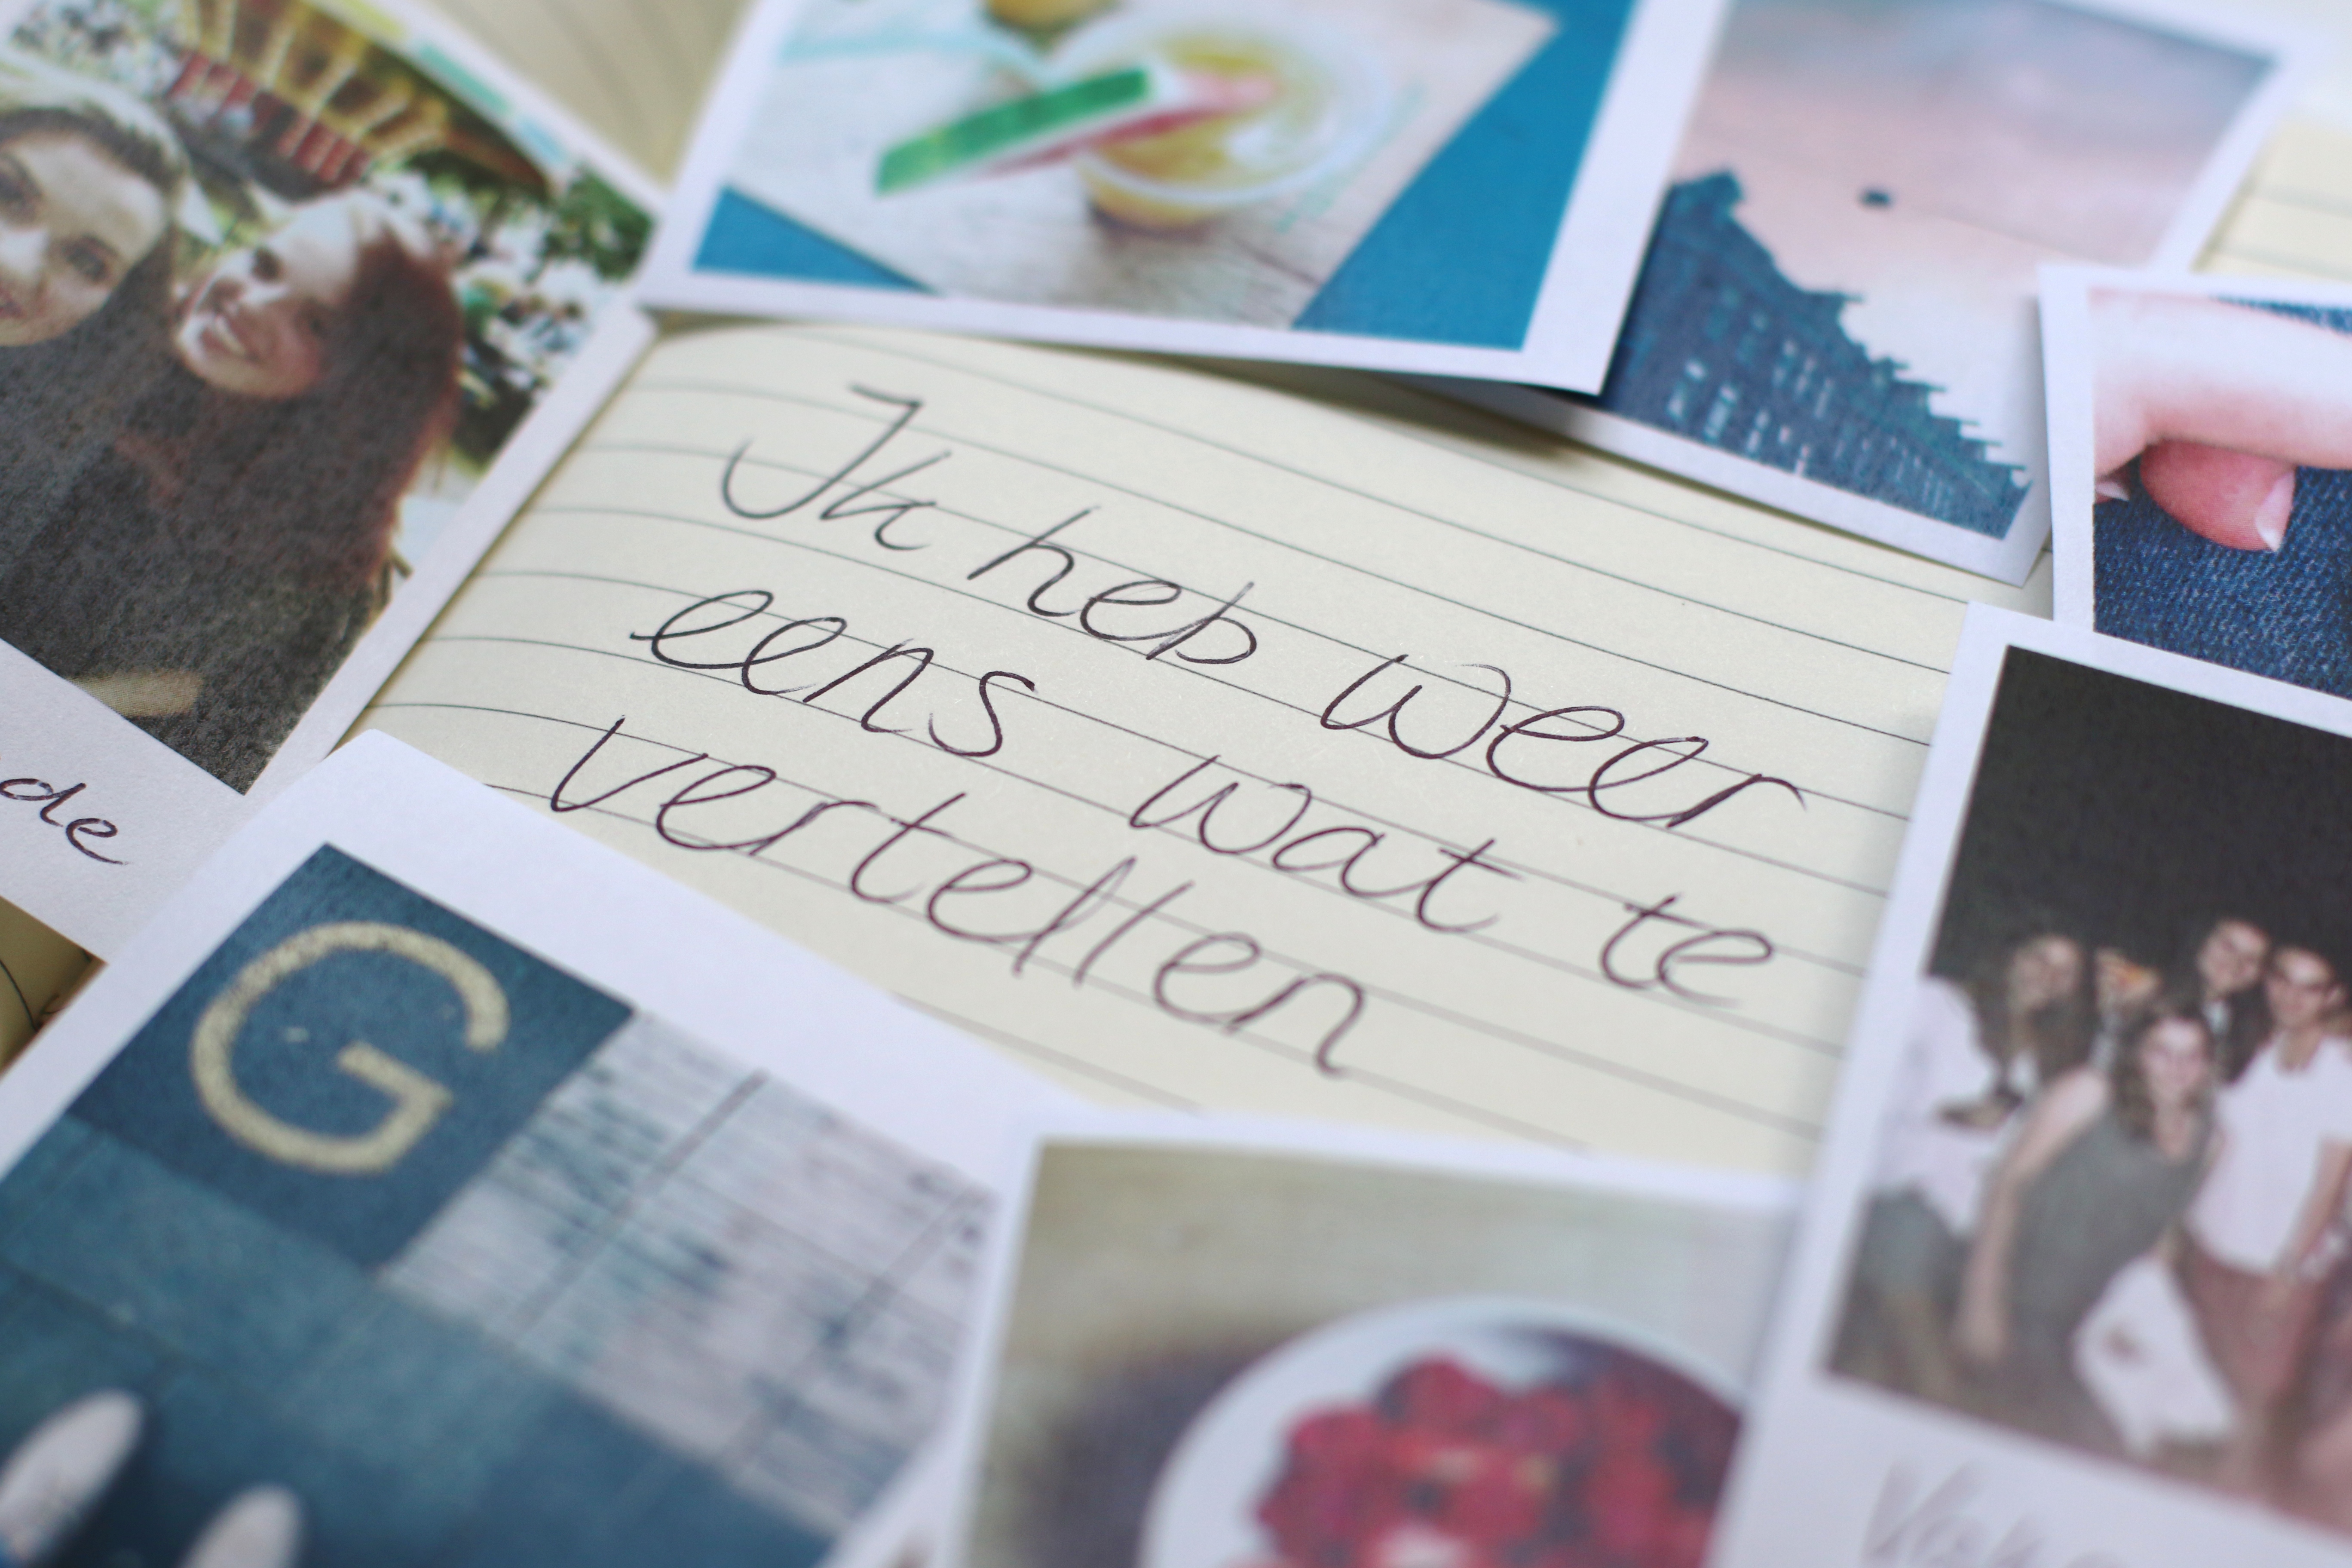 Ik heb weer
eens wat te
vertellen
de
G